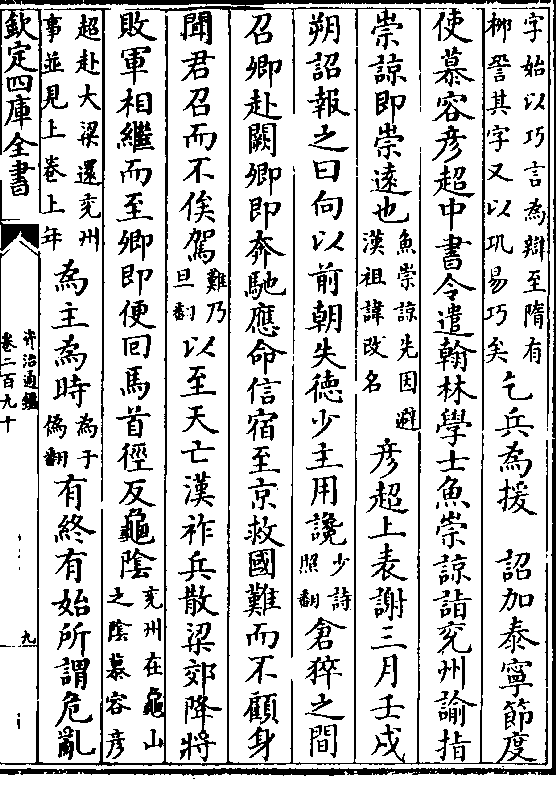 字始以巧言為辯至隋有
柳䛒其字又以巩易巧矣
乞兵為援　詔加泰寧節度
使慕容彦超中書令遣翰林學士魚崇諒詣兖州諭指
崇諒即崇遠也
魚崇諒先因避
漢祖諱改名
彦超上表謝三月壬戌
朔詔報之曰向以前朝失徳少主用讒
少詩
照翻
倉猝之間
召卿赴闕卿即奔馳應命信宿至京救國難而不顧身
聞君召而不俟駕
難乃
旦翻
以至天亡漢祚兵散梁郊降將
敗軍相繼而至卿即便回馬首徑反龜陰
兖州在龜山
之陰慕容彦
超赴大梁還兖州
事並見上卷上年
為主為時
為于
偽翻
有終有始所謂危亂
欽定四庫全書
資治通鑑
卷二百九十
九